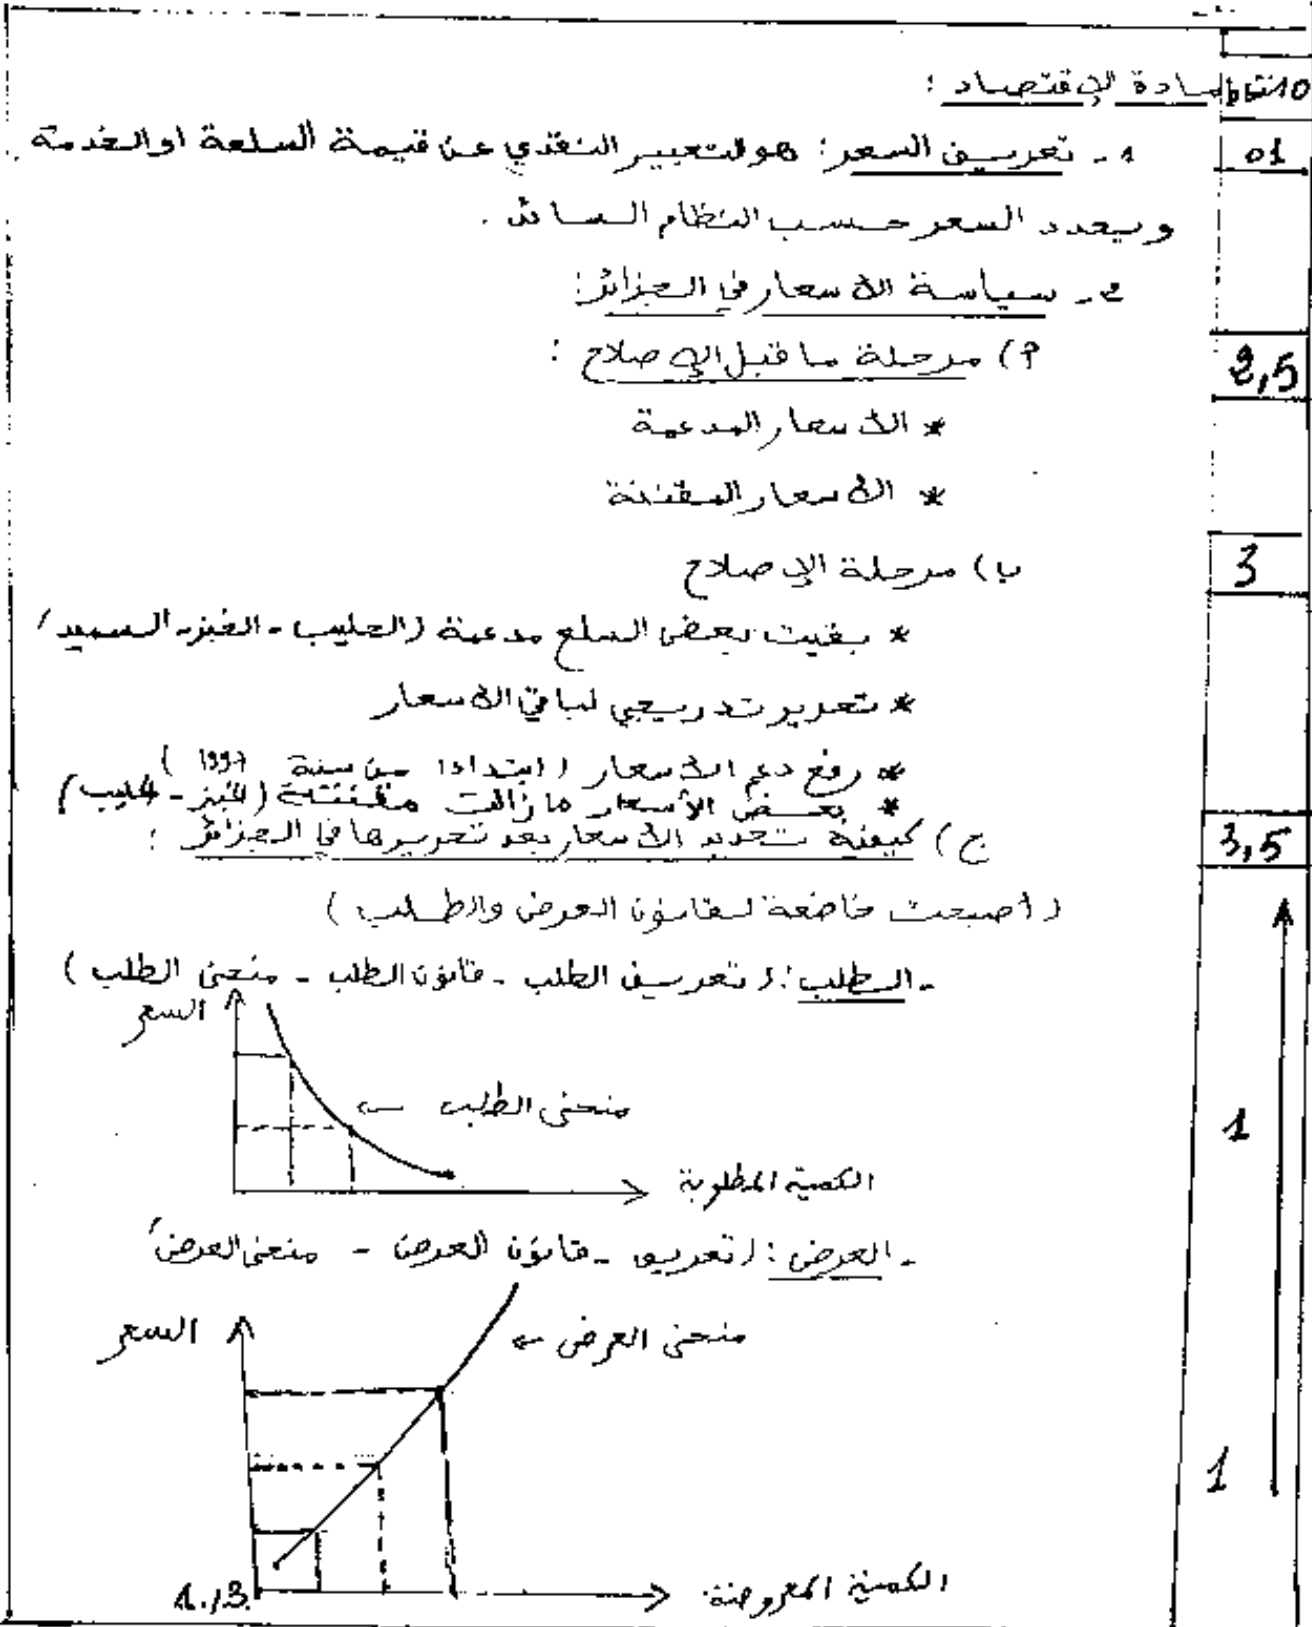 10 نقاط مادة الاقتصاد :
01 1 - تعريف السعر : هو التعبير النقدي عن قيمة السلعة او الخدمة .
ويحدد السعر حسب النظام السائد .
2 - سياسة الاسعار في الجزائر :
2,5 أ) مرحلة ما قبل الإصلاح :
* الاسعار المدعمة
* الاسعار المقننة
3 ب) مرحلة الإصلاح
* بقيت بعض السلع مدعمة (الحليب - الخبز - السميد)
* تحرير تدريجي لباقي الاسعار
* رفع دعم الاسعار (ابتداءا من سنة 1997)
* بعض الأسعار مازالت مقننة (الخبز - الحليب)
3,5 ج) كيفية تحديد الاسعار بعد تحريرها في الجزائر :
(أصبحت خاضعة لقانون العرض والطلب)
- الطلب : (تعريف الطلب - قانون الطلب - منحنى الطلب)
السعر
منحنى الطلب
1
الكمية المطلوبة
- العرض : (تعريف - قانون العرض - منحنى العرض)
السعر
منحنى العرض
1
الكمية المعروضة
1./3.